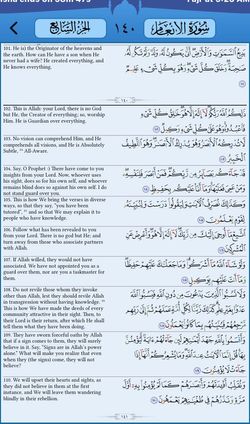 الجزء السابع
١٤٠
سورة الأنعام
101. He is the Originator of the heavens and
the earth. How can He have a son when He
never had a wife? He created everything, and
He knows everything.
بَدِيعُ السَّمَاوَاتِ وَالْأَرْضِ أَنَّىٰ يَكُونُ لَهُ وَلَدٌ وَلَمْ تَكُن لَّهُ
صَاحِبَةٌ وَخَلَقَ كُلَّ شَيْءٍ وَهُوَ بِكُلِّ شَيْءٍ عَلِيمٌ
١٤٠
102. This is Allah: your Lord, there is no God
but He, the Creator of everything; so, worship
Him. He is Guardian over everything.
ذَٰلِكُمُ اللَّهُ رَبُّكُمْ لَا إِلَٰهَ إِلَّا هُوَ خَالِقُ كُلِّ شَيْءٍ
فَاعْبُدُوهُ وَهُوَ عَلَىٰ كُلِّ شَيْءٍ وَكِيلٌ
103. No vision can comprehend Him, and He
comprehends all visions, and He is Absolutely
Subtle, All-Aware.
لَّا تُدْرِكُهُ الْأَبْصَارُ وَهُوَ يُدْرِكُ الْأَبْصَارَ وَهُوَ اللَّطِيفُ
الْخَبِيرُ
104. Say, O Prophet :) There have come to you
insights from your Lord. Now, whoever uses
his sight, does so for his own self, and whoever
remains blind does so against his own self. I do
not stand guard over you.
قَدْ جَاءَكُم بَصَائِرُ مِن رَّبِّكُمْ فَمَنْ أَبْصَرَ فَلِنَفْسِهِ
وَمَنْ عَمِيَ فَعَلَيْهَا وَمَا أَنَا عَلَيْكُم بِحَفِيظٍ
105. This is how We bring the verses in diverse
ways, so that they say, "you have been
tutored", and so that We may explain it to
people who have knowledge.
وَكَذَٰلِكَ نُصَرِّفُ الْآيَاتِ وَلِيَقُولُوا دَرَسْتَ وَلِنُبَيِّنَهُ
لِقَوْمٍ يَعْلَمُونَ
106. Follow what has been revealed to you
from your Lord. There is no god but He; and
turn away from those who associate partners
with Allah.
107. If Allah willed, they would not have
associated. We have not appointed you as a
guard over them, nor are you a taskmaster for
them.
وَلَوْ شَاءَ اللَّهُ مَا أَشْرَكُوا وَمَا جَعَلْنَاكَ عَلَيْهِمْ حَفِيظًا
وَمَا أَنتَ عَلَيْهِم بِوَكِيلٍ
108. Do not revile those whom they invoke
other than Allah, lest they should revile Allah
in transgression without having knowledge.
This is how We have made the deeds of every
community attractive in their sight. Then, to
their Lord is their return, after which He shall
tell them what they have been doing.
109. They have sworn forceful oaths by Allah
that if a sign comes to them, they will surely
believe in it. Say, "Signs are in Allah's power
alone." What will make you realize that even
when they (the signs) come, they will not
believe?
110. We will upset their hearts and sights, as
they did not believe in them at the first
instance, and We will leave them wandering
blindly in their rebellion.
١٤١